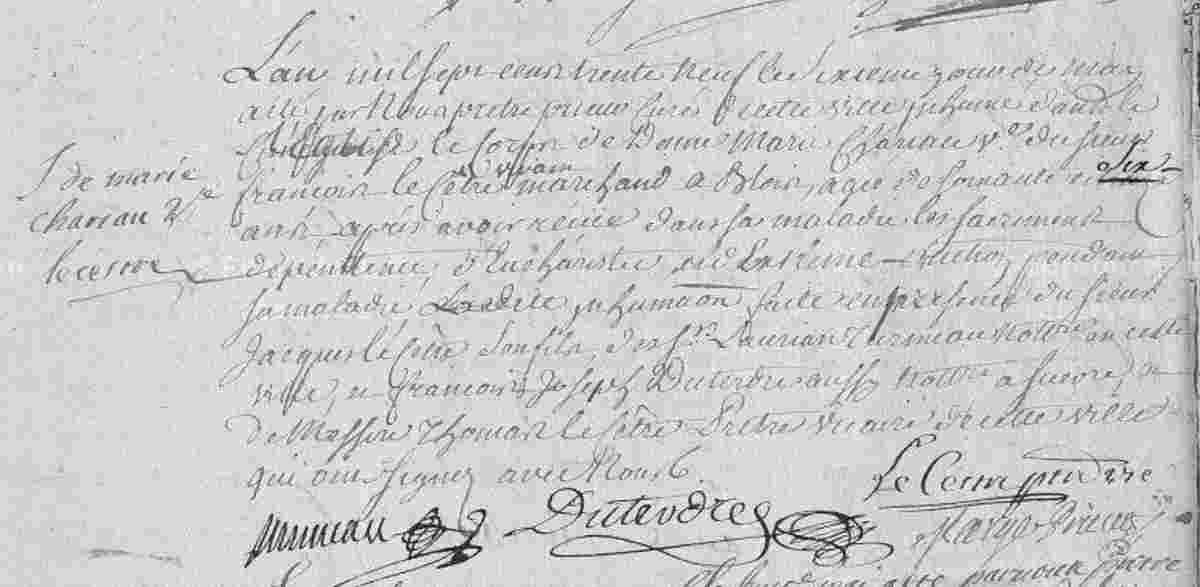 L'an mil sept cens trente neuf le sixieme jour de may
a été par Nous pretre prieur curé de cette ville inhumé dans le
L'Eglise le corps de Dame Marie Chariau ve. du sieur
S de marie
francois le Cêtre vivant marchand a Blois, agée de soixante et Six
chariau Ve
ans après avoir recüe dans sa maladie les sacrement
lecestre
depenitence, d'Eucharistie, et d'Extrême-onction pendant
sa maladie Ladite inhumaon faite en presence du sieur
Jacques le Cêtre son fils, des Srs. Turmeau nottre en cette
ville, et francois Joseph Duterdre aussy nottre a suevre, et
de Messire Thomas le Cêtre Prêtre vicaire de cette ville
qui ont signez avec Nous
Le Cestre prêtre
turmeau Duterdre
prieur